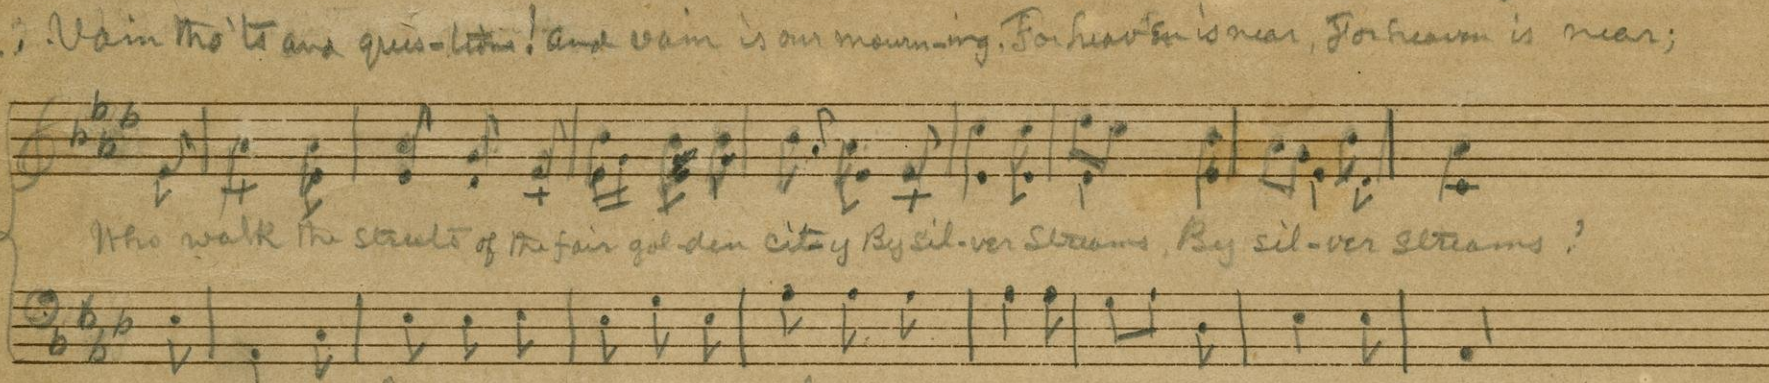 ? Vain tho'ts and ques-tions! And vain is our mourn-ing. For heaven is near, For heaven is near;
Who walk the streets of the fair gol-den cit-y By sil-ver Streams, By sil-ver streams?